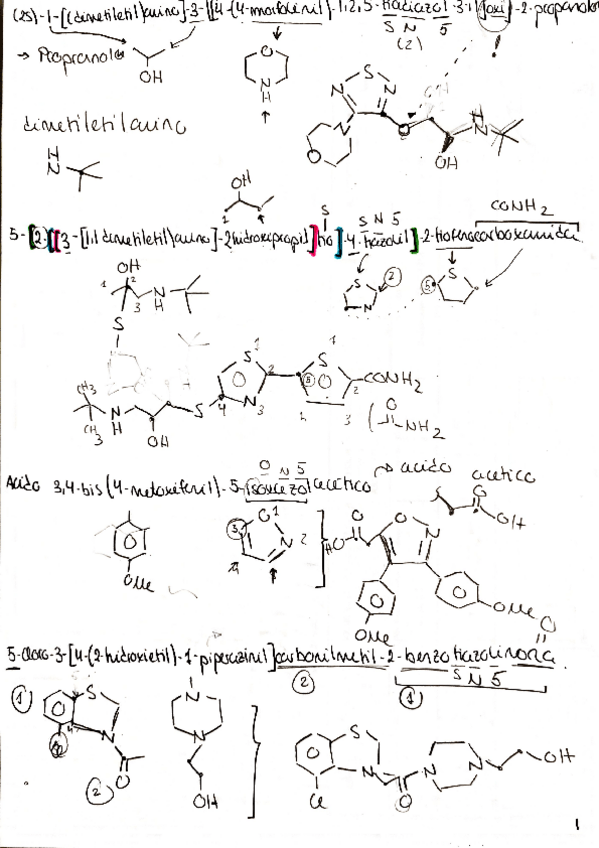 (2S)-1-[(dimetiletil)amino]-3-[[4-(4-morfolinil)-1,2,5-tiadiazol-3-il]oxi]-2-propanol
S N 5
(2)
→ Propranolol
OH
O
N
H
S
N N
N
O
O
OH
N
H
!
dimetiletilamino
H
N
OH
1 2
S
S N 5
CONH2
5-[2-[[3-[1,1 dimetiletil)amino]-2hidroxipropil]tio]-4-tiazolil]-2-tiofenocarboxamida
OH
1 2 3
N
H
S
S
N
2
S
5
CH3
CH3
N
H
OH
S
4
S 1
2
N3
S 1
5
2
4 3
CONH2
O
NH2
O N 5
→ acido acetico
Acido 3,4-bis(4-metoxifenil)-5-isoxazolacético
OMe
O1
5
N 2
4
HO
O
O
N
OMe
OMe
O
OH
O
5-cloro-3-[4-(2-hidroxietil)-1-piperazinil]carbonilmetil-2-benzotiazolinona
S N 5
2
1
1
S
N
2
O
N
N
OH
S
N
Cl
O
N
N
OH
1